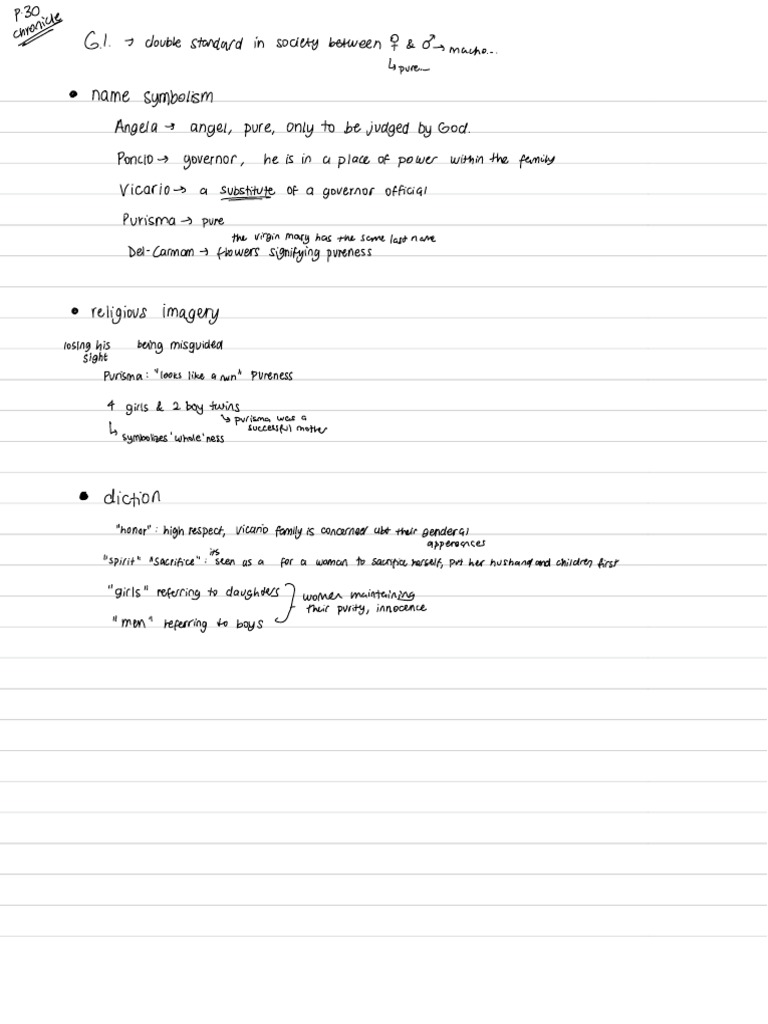 P.30
chronicle
G.I. → double standard in society between ♀ & ♂ → macho...
↳ pure...
• name symbolism
Angela → angel, pure, only to be judged by God.
Poncio → governor, he is in a place of power within the family
Vicario → a substitute of a governor official
Purisma → pure
the virgin mary has the same last name
Del-Carman → flowers signifying pureness
• religious imagery
losing his being misguided
sight
Purisma: "looks like a nun" Pureness
4 girls & 2 boy twins
↳ purisma was a
successful mother
↳ symbolizes 'whole'ness
• diction
"honor": high respect, Vicario family is concerned abt their genderal
apperances
"spirit" "sacrifice": its seen as a for a woman to sacrifice herself, put her husband and children first
"girls" referring to daughters } women maintaining
their purity, innocence
"men" referring to boys